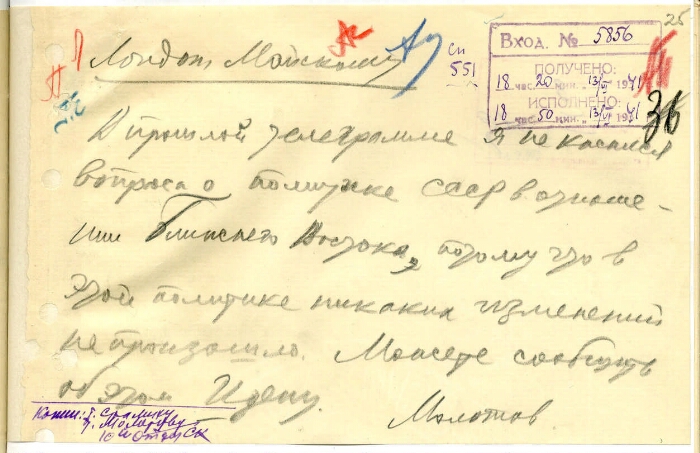 25
Лондон, Майскому
сп
551
Вход. № 5856
ПОЛУЧЕНО:
18 час. 20 мин. „13/VI 1941
ИСПОЛНЕНО:
18 час. 50 мин. „13/VI 1941
36
В прошлой телеграмме я не касался
вопроса о политике СССР в отноше-
нии Ближнего Востока, потому что в
этой политике никаких изменений
не произошло. Можете сообщить
об этом Идену.
Молотов
Копии: т. Сталину
т. Молотову
10й Отдел СК